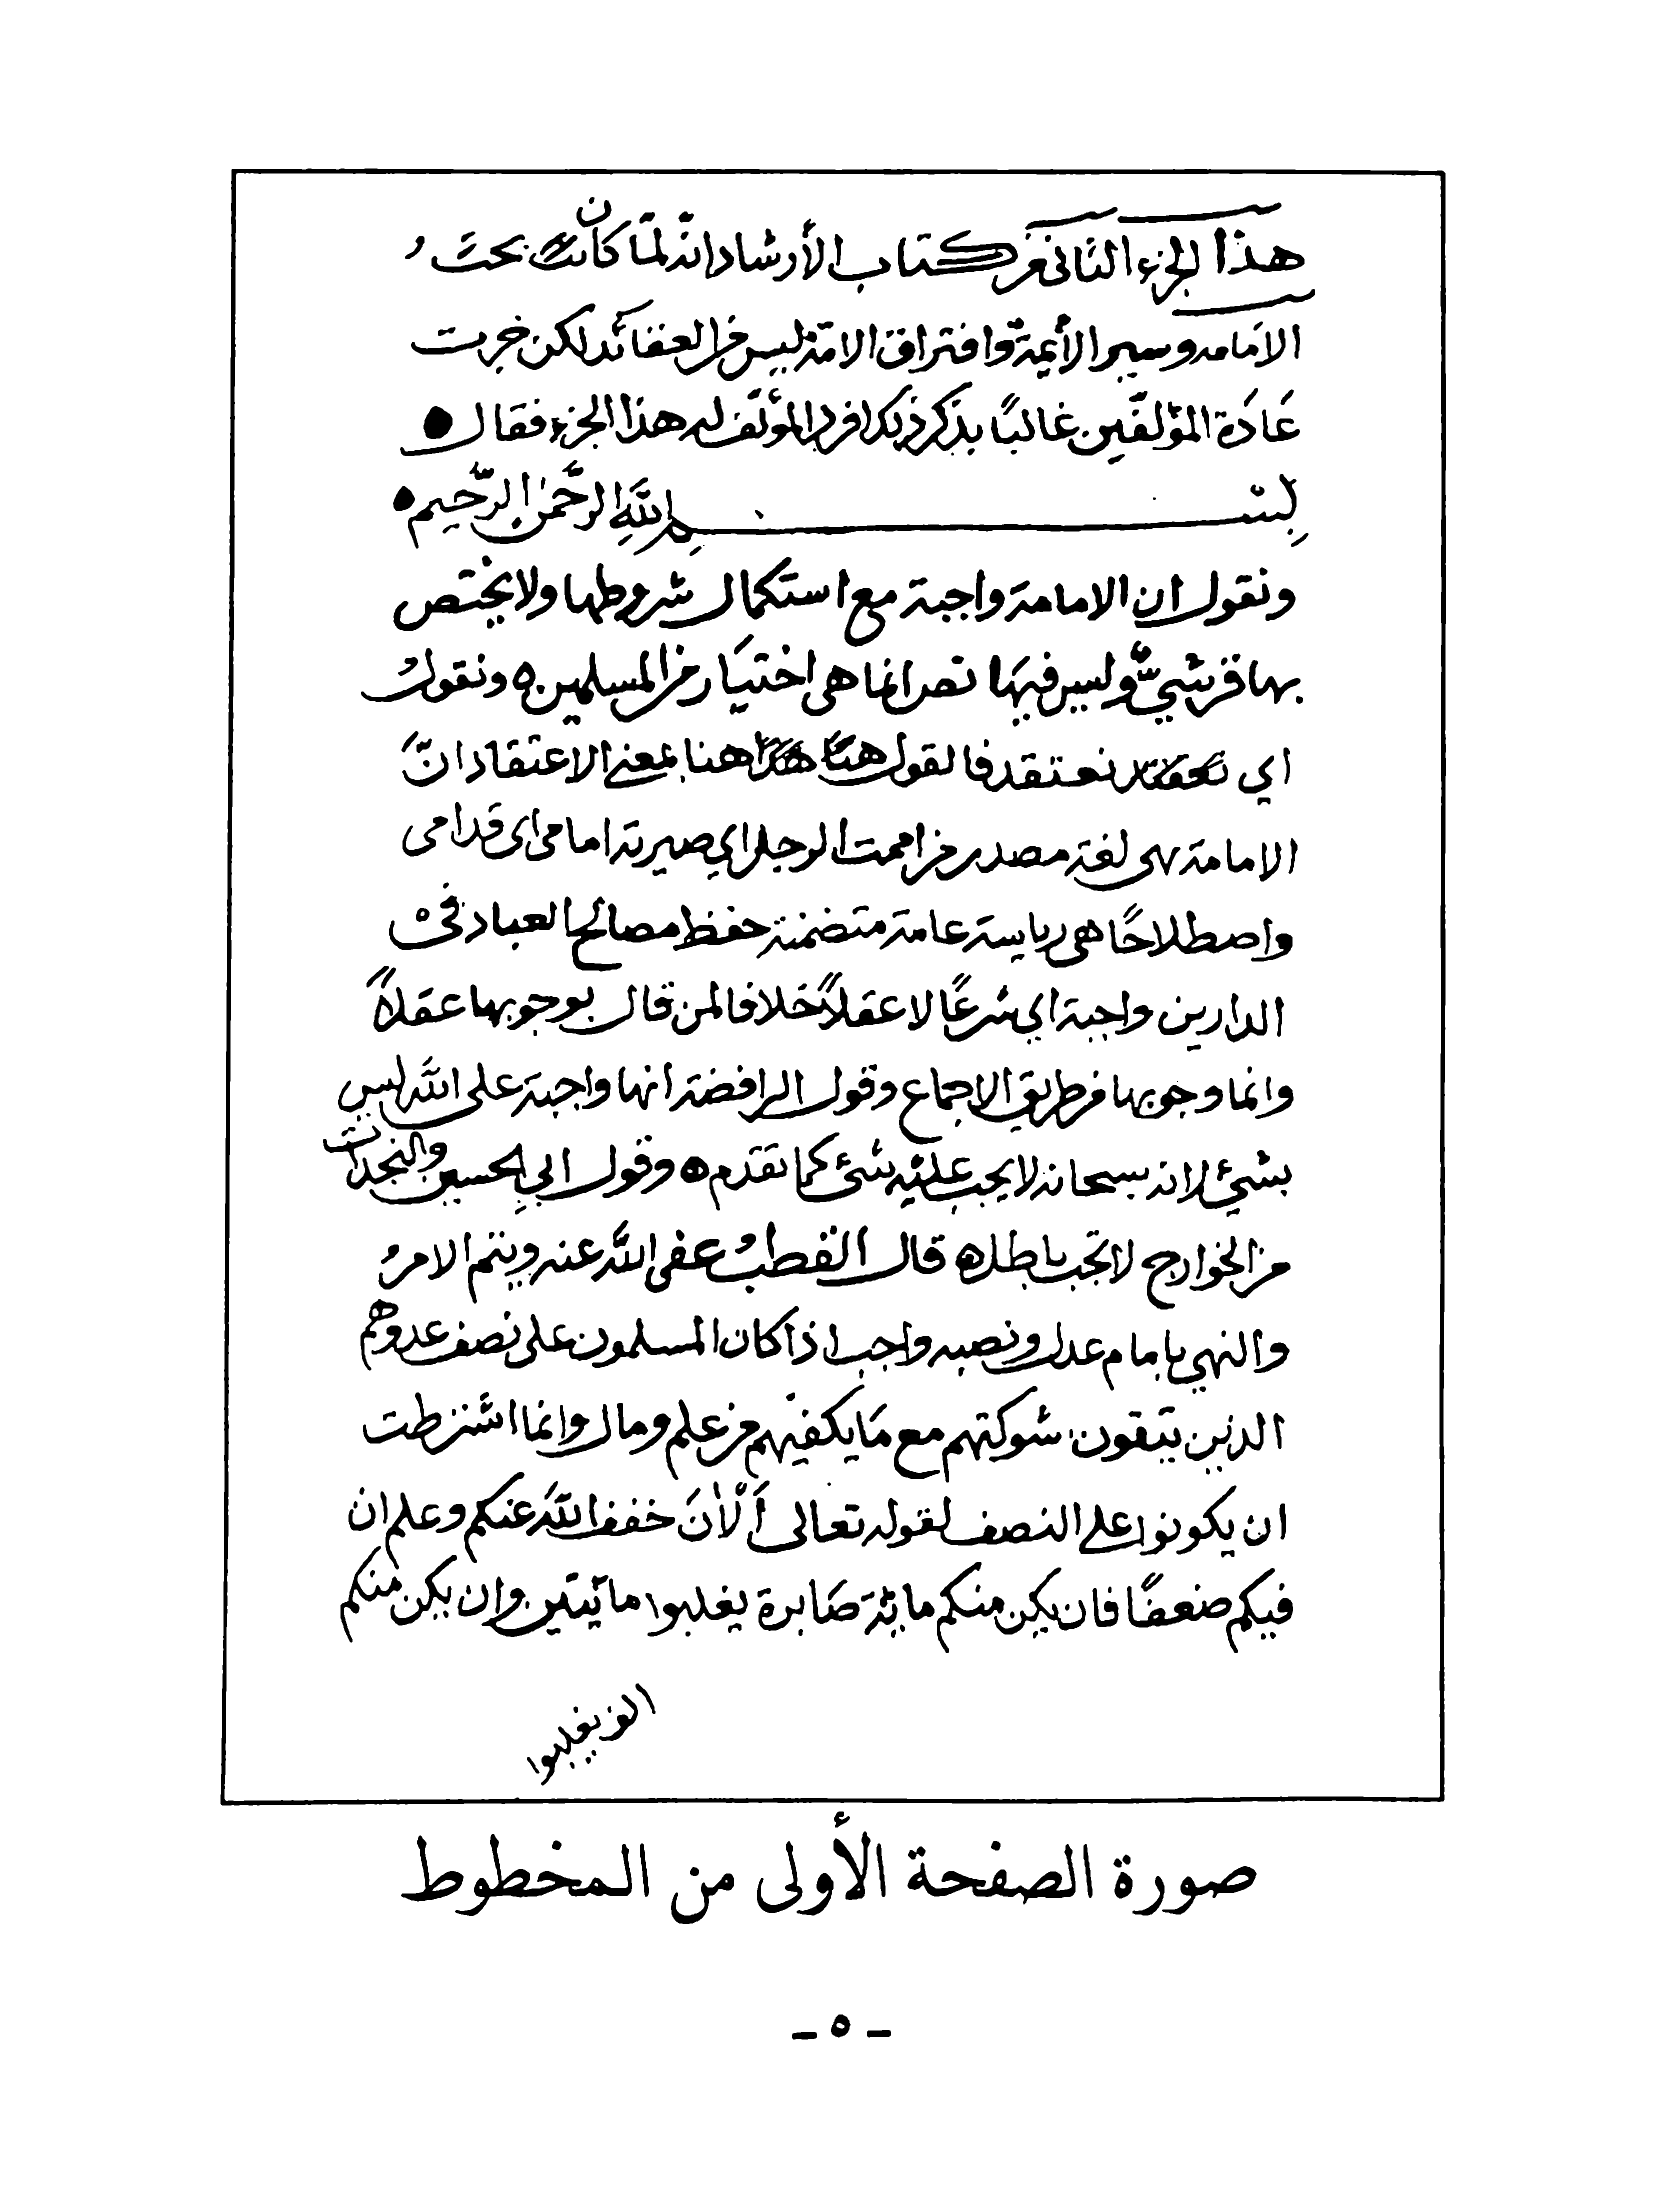 هذا الجزء الثاني من كتاب الأرشاد انه لمّا كان بحثُ
الامامه وسير الأيمة وافتراق الامة ليس من العقائد لكن جرت
عَادَة المؤلفّين غالبًا بذكر ذلك افرد المؤلّف له هذا الجزء فقال
بِسْم اللَّهِ الرَّحْمٰنِ الرَّحِيمِ
ونقول ان الامامة واجبة مع استكمال شروطها ولا يختص
بها قريشيٌّ وليس فيها نص انما هي اختيار من المسلمين ونقولُ
اي نعتقد فالقول هنا بمعنى الاعتقاد انَّ
الامامة هي لغة مصدر من اممت الرجل اي صيرته امامي اى قدامى
واصطلاحًا هي رياسة عامة متضمنة حفظ مصالح العباد في
الدارين واجبة اي شرعًا لا عقلاً خلافا لمن قال بوجوبها عقلاً
وانما وجوبها من طريق الاجماع وقول الرافضة انها واجبة على الله ليس
بشيئ لانه سبحانه لا يجب عليه شئ كما تقدم وقول ابي الحسين والنجدات
من الخوارج لا تجب باطل قال القطبُ عفى الله عنه ويتم الامرُ
والنهي بامام عدل ونصبه واجب اذا كان المسلمون على نصف عدوهم
الذين يتقون شوكتهم مع مَا يكفيهم من علم ومال وانما اشترطت
ان يكونوا على النصف لقوله تعالى أَلْآنَ خفف الله عنكم وعلم ان
فيكم ضعفًا فان يكن منكم مائة صَابرة يغلبوا مائيتين وان يكن منكم
الف يغلبوا
صورة الصفحة الأولى من المخطوط
- ٥ -